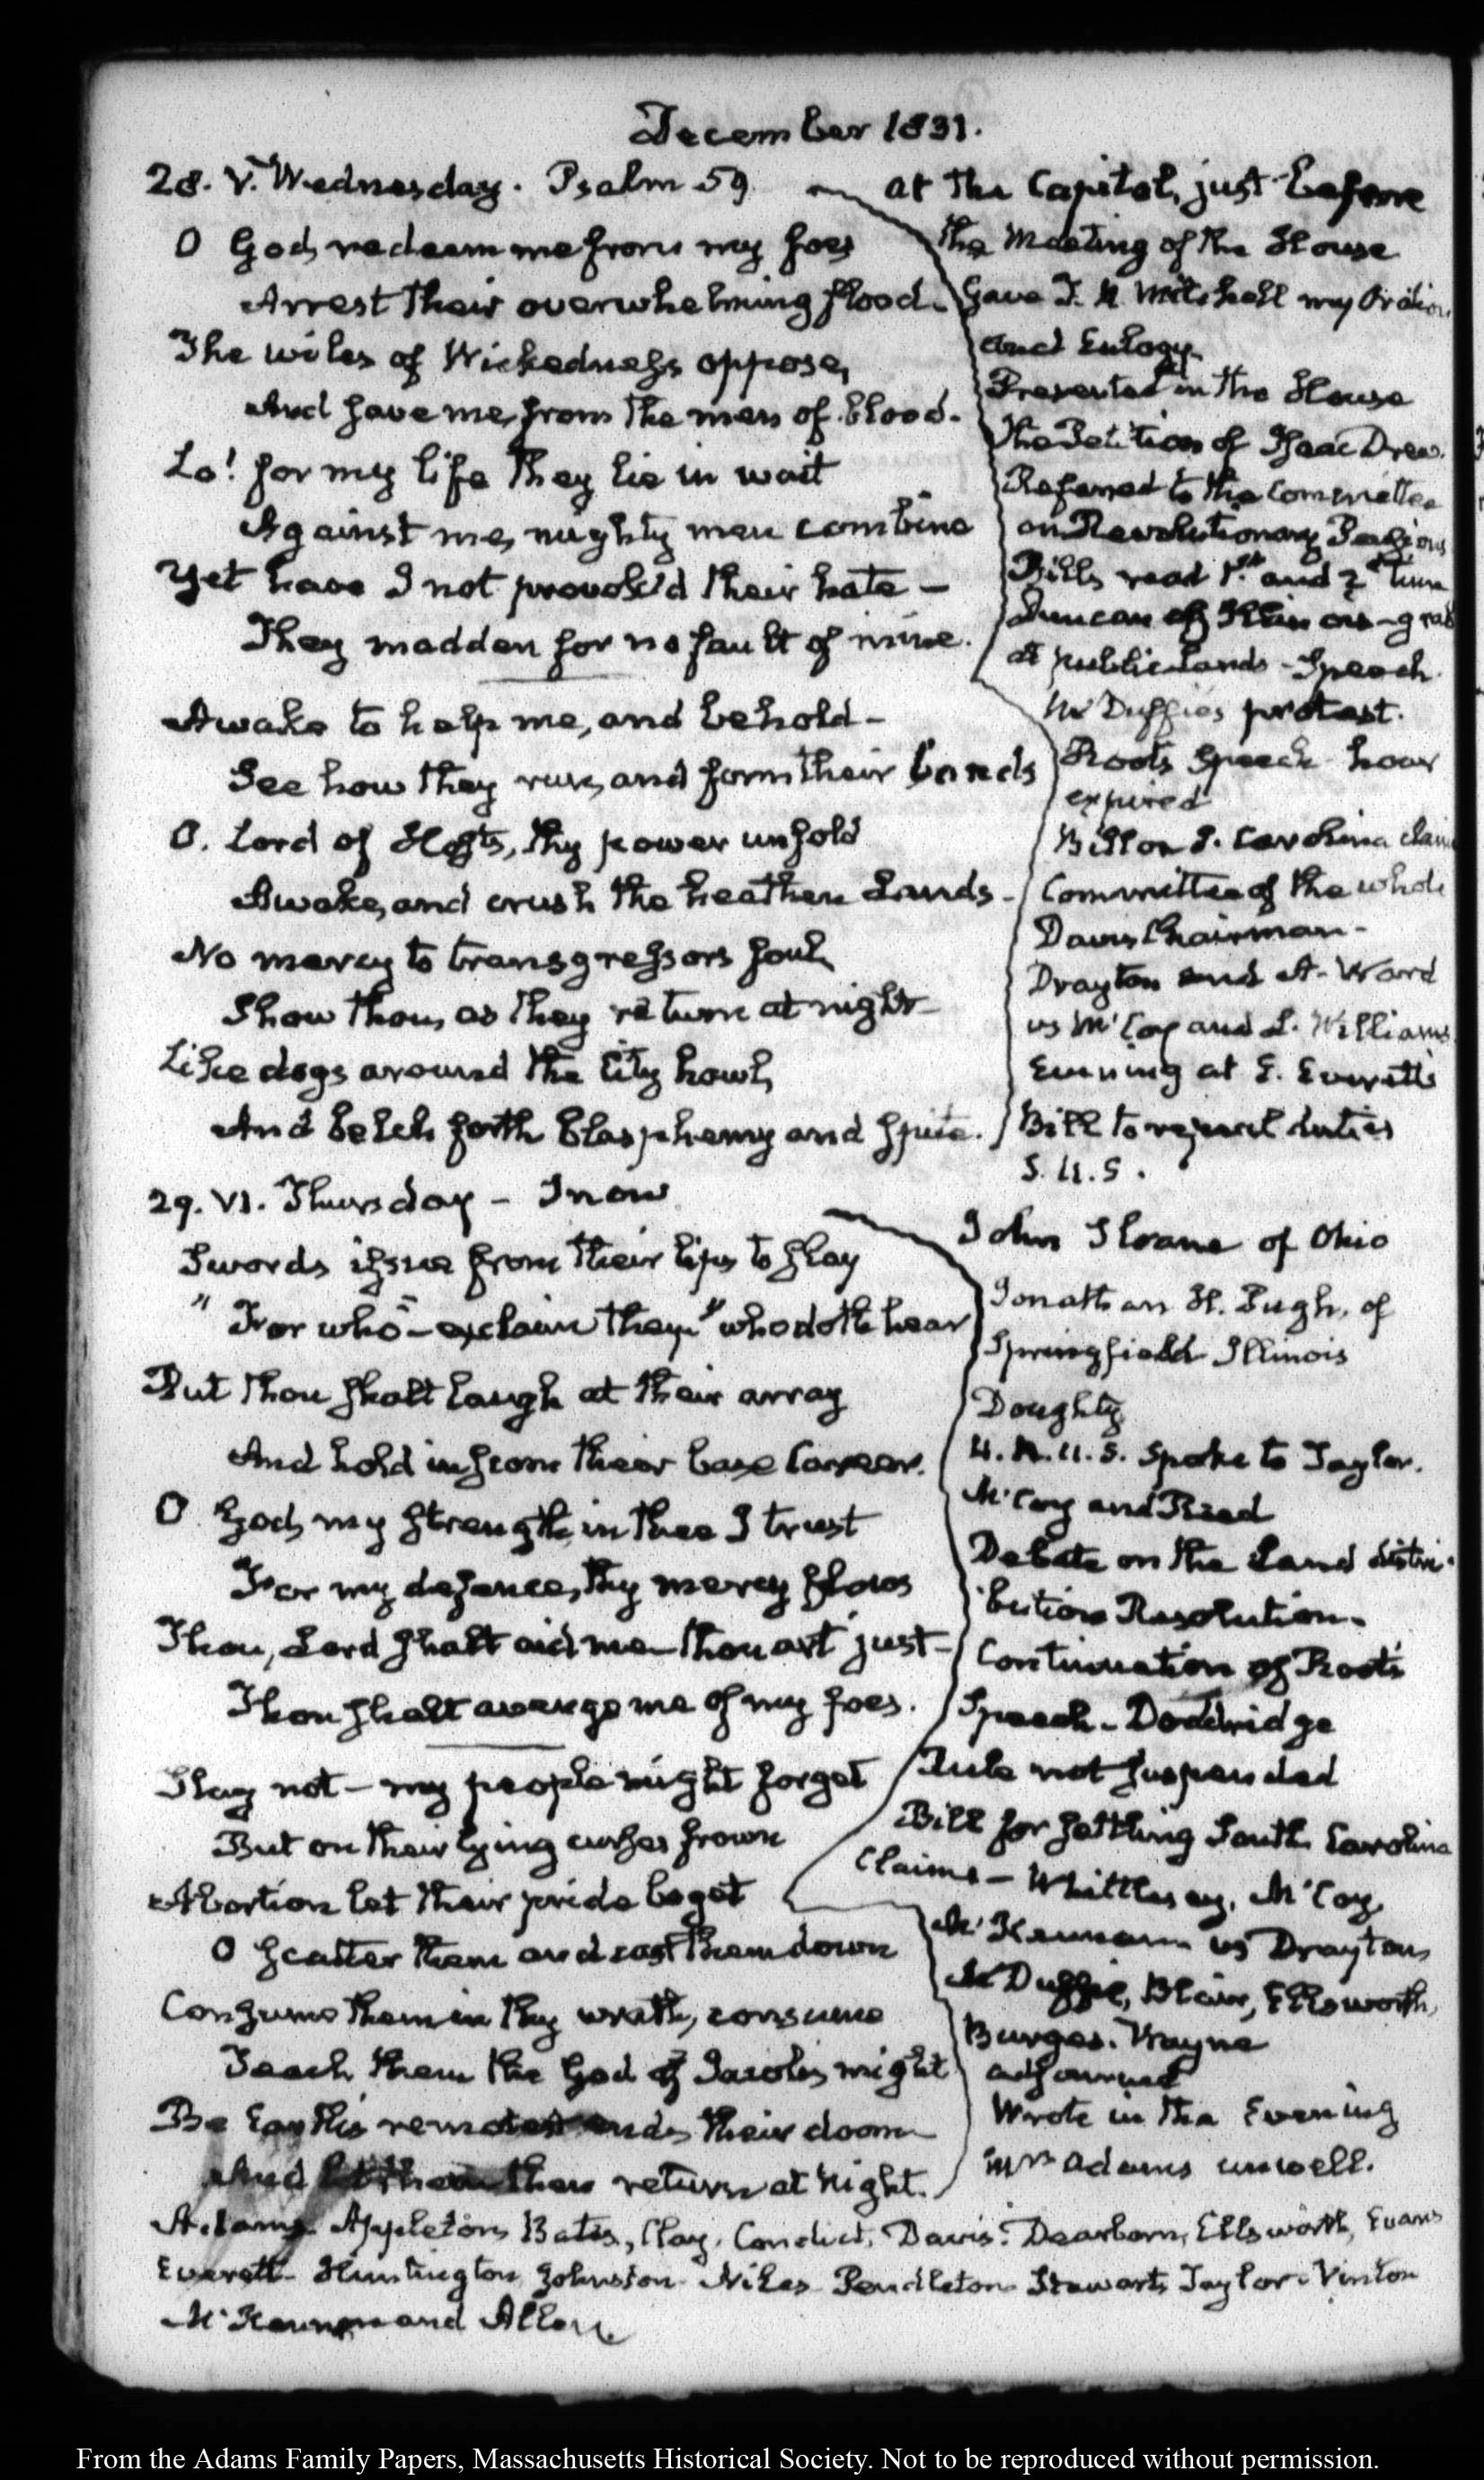 December 1831.
28. V. Wednesday. Psalm 59
O God, redeem me from my foes
Arrest their overwhelming flood.
The wiles of Wickedness oppose,
And save me, from the men of blood.
Lo! for my life they lie in wait
Against me, mighty men combine
Yet have I not provok'd their hate —
They madden for no fault of mine.
Awake to help me, and behold —
See how they run, and form their bands
O. Lord of Hosts, thy power unfold
Awake, and crush the heathen Lands.
No mercy to transgressors foul,
Show thou, as they return at night
Like dogs around the City howl,
And belch forth blasphemy and spite.
at the Capitol, just before
the Meeting of the House
Gave T. R. Mitchell my Oration
and Eulogy.
Presented in the House
the Petition of Isaac Drew.
Referred to the Committee
on Revolutionary Pensions
Bills read 1st. and 2d time
Duncan of Illinois — grad
at public Lands — Speech
McDuffie's protest.
Root's Speech hour
expired
Bill on S. Carolina claim
Committee of the whole
Davis Chairman —
Drayton and A. Ward
vs McCoy and L. Williams
Evening at E. Everett's
Bill to repeal duties
S. U. S.
29. VI. Thursday — Snow
Swords issue from their lips to slay
"For who" — exclaim they "who doth hear
But thou shalt laugh at their array
And hold in scorn their base Career.
O God, my strength, in thee I trust
For my defence, thy mercy flows
Thou, Lord shalt aid me — thou art just —
Thou shalt avenge me of my foes.
Slay not — my people might forget
But on their lying curses frown
Abortion let their pride beget
O scatter them and cast them down
Consume them in thy wrath, consume
Teach them the God of Jacob's might
Be Earth's remotest ends their doom
And let them then return at night.
John Sloane of Ohio
Jonathan H. Pugh, of
Springfield Illinois
Doughty
H. R. U. S. Spoke to Taylor.
McCoy and Reed
Debate on the Land distri-
bution Resolution.
Continuation of Root's
Speech — Doddridge
Rule not suspended
Bill for settling South Carolina
Claims — Whittlesey, McCoy,
McKennan vs Drayton,
McDuffie, Blair, Ellsworth,
Burges. Wayne
adjourned
Wrote in the Evening
Mrs Adams unwell.
Adams. Appleton, Bates, Clay, Condict, Davis. Dearborn, Ellsworth, Evans
Everett. Huntington, Johnston. Niles Pendleton Stewart, Taylor. Vinton
McKennan and Allen.
From the Adams Family Papers, Massachusetts Historical Society. Not to be reproduced without permission.